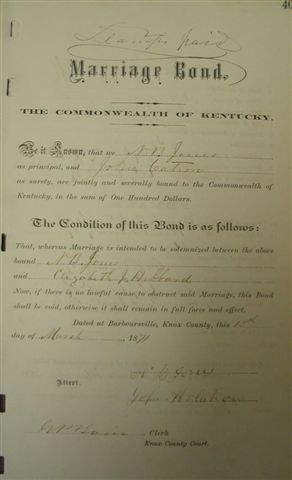 40
Stamps paid
Marriage Bond.
THE COMMONWEALTH OF KENTUCKY.
Be it Known, that we N. B. Jones
as principal, and John Catron
as surety, are jointly and severally bound to the Commonwealth of
Kentucky, in the sum of One Hundred Dollars.
The Condition of this Bond is as follows:
That, whereas Marriage is intended to be solemnized between the above
bound N. B. Jones
and Elizabeth J. H.
Now, if there is no lawful cause to obstruct said Marriage, this Bond
shall be void, otherwise it shall remain in full force and effect.
Dated at Barboursville, Knox County, this
day of March 1871
N B Jones
Attest.
John H Catron
Clerk
Knox County Court.